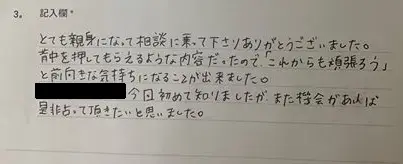 3. 記入欄*
とても親身になって相談に乗って下さりありがとうございました。
背中を押してもらえるような内容だったので、「これからも頑張ろう」
と前向きな気持ちになることが出来ました。
今回初めて知りましたが、また機会があれば
是非占って頂きたいと思いました。